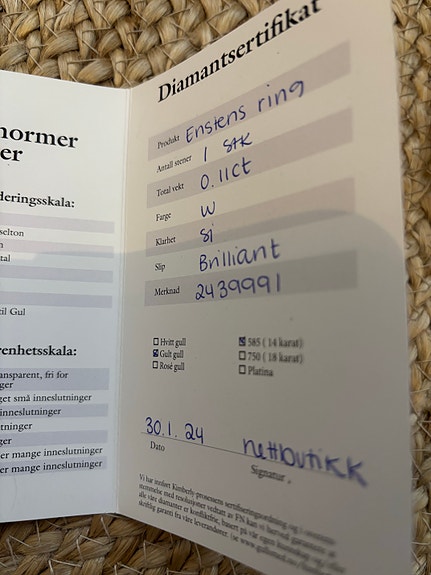 normer
er
deringsskala:
sselton
n
tal
til Gul
renhetsskala:
ansparent, fri for
ger
get små inneslutninger
inneslutninger
utninger
ger
er mange inneslutninger
er mange inneslutninger
Diamantsertifikat
Produkt Enstens ring
Antall stener 1 STK
Total vekt 0.11ct
Farge W
Klarhet Si
Slip Brilliant
Merknad 2439991
Hvitt gull
Gult gull
Rosé gull
585 ( 14 karat)
750 ( 18 karat)
Platina
30.1.24 nettbutikk
Dato Signatur
Vi har innført Kimberly prosessens sertifiseringsordning og i overens-
stemmelse med resolusjoner vedtatt av FN kan vi herved garantere at
alle våre diamanter er konfliktfrie, basert på vår egen kunnskap og/eller
skriftlig garanti fra våre leverandører.